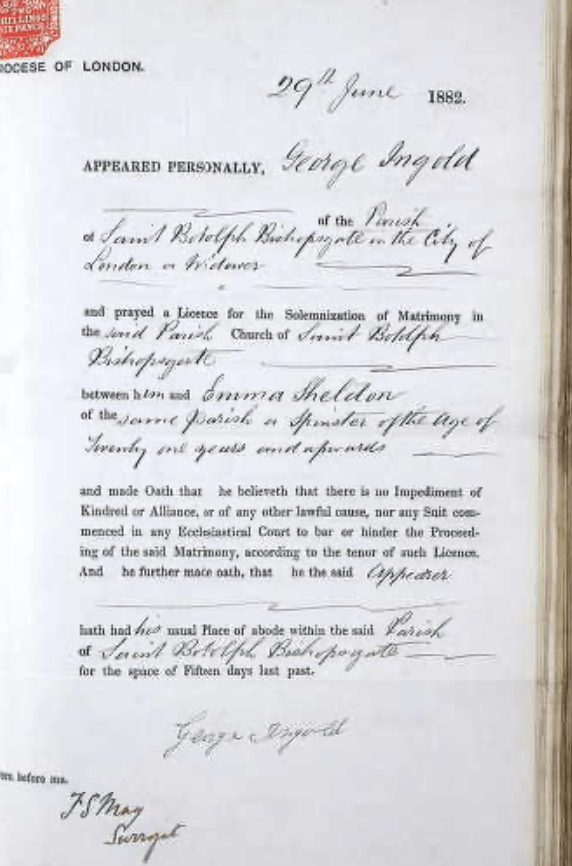 SHILLINGS
DIOCESE OF LONDON.
29th June 1882.
APPEARED PERSONALLY, George Ingold
of the Parish
of Saint Botolph Bishopsgate in the City of
London a Widower
and prayed a Licence for the Solemnization of Matrimony in
the said Parish Church of Saint Botolph
Bishopsgate
between him and Emma Sheldon
of the same parish a Spinster of the Age of
Twenty one years and upwards
and made Oath that he believeth that there is no Impediment of
Kindred or Alliance, or of any other lawful cause, nor any Suit com-
menced in any Ecclesiastical Court to bar or hinder the Proceed-
ing of the said Matrimony, according to the tenor of such Licence.
And he further made oath, that he the said Appearer
hath had his usual Place of abode within the said Parish
of Saint Botolph Bishopsgate
for the space of Fifteen days last past.
George Ingold
before me.
F S May
Surrogt